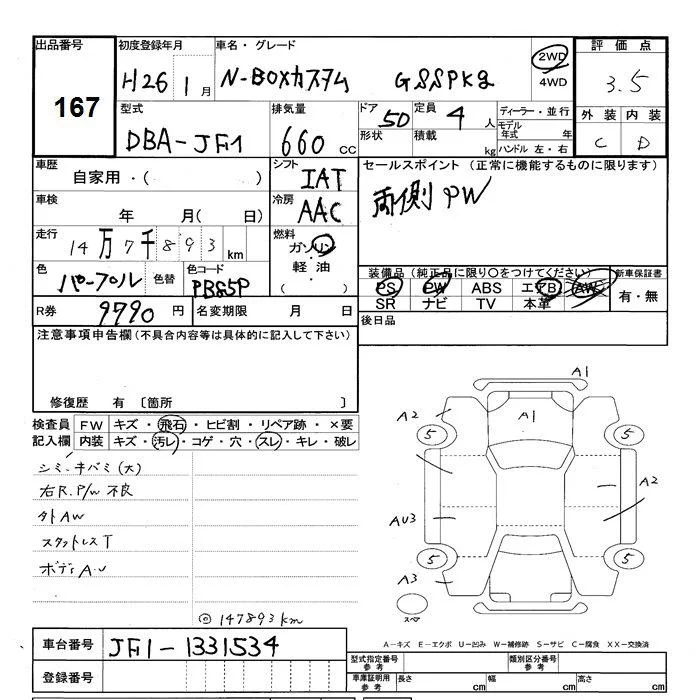 出品番号 初度登録年月 車名・グレード 2WD 評価点
167 H26 1月 N-BOXカスタム GSSPKg 4WD 3.5
型式 排気量 ドア 5D 定員 4人 ディーラー・並行 外装 内装
DBA-JF1 660cc 形状 積載 kg モデル年式 年 C D
ハンドル 左・右
車歴 シフト セールスポイント (正常に機能するものに限ります)
自家用・( ) IAT 両側PW
車検 冷房
年 月( 日) AAC
走行 燃料
14万7千893km ガソリン
色 色替 色コード 軽油
パープル PB85P ( )
装備品(純正品に限り○をつけてください) 新車保証書
PS PW ABS エアB AW 有・無
SR ナビ TV 本革
R券 9790円 名変期限 月 日 後日品
注意事項申告欄(不具合内容等は具体的に記入して下さい)
修復歴 有 〔箇所 〕
検査員 FW キズ・飛石・ヒビ割・リペア跡・×要
記入欄 内装 キズ・汚レ・コゲ・穴・スレ・キレ・破レ
シミ・キバミ(大)
右R.P/w不良
タトAW
スタットレスT
ボディA.U
◎147893km
A1
A2 A1
5 5
A2
AU3
5 5
A3
スペア
A-キズ E-エクボ U-凹み W-補修跡 S-サビ C-腐食 XX-交換済
車台番号 JF1-1331534
登録番号
型式指定番号 参考 類別区分番号 参考
車庫証明用 参考 長さ cm 幅 cm 高さ cm